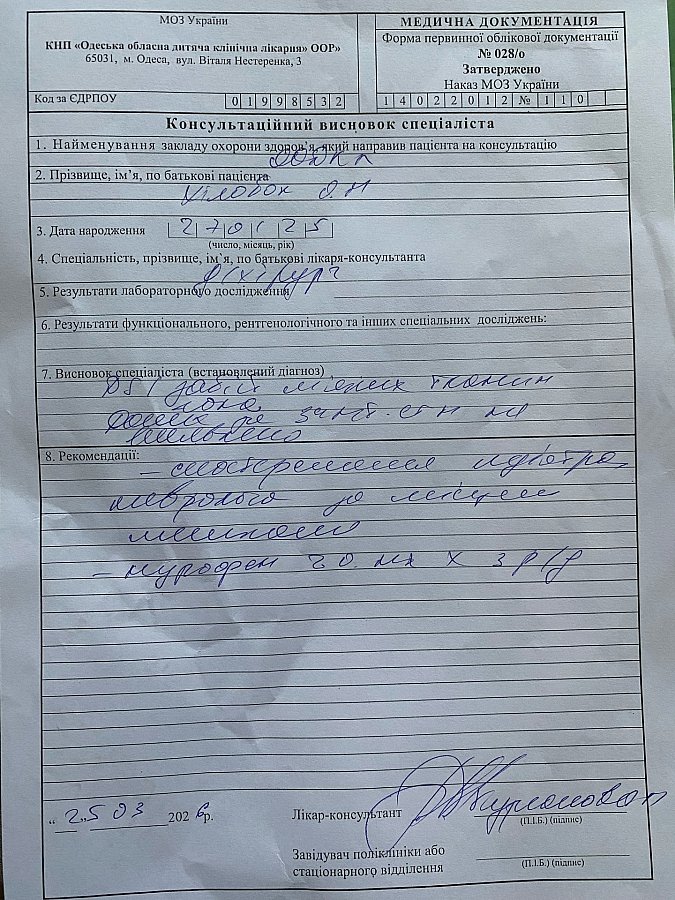 МОЗ України
КНП «Одеська обласна дитяча клінічна лікарня» ООР»
65031, м. Одеса, вул. Віталя Нестеренка, 3
Код за ЄДРПОУ 01998532
МЕДИЧНА ДОКУМЕНТАЦІЯ
Форма первинної облікової документації
№ 028/о
Затверджено
Наказ МОЗ України
14022012 № 110
Консультаційний висновок спеціаліста
1. Найменування закладу охорони здоров'я, який направив пацієнта на консультацію
ООДКЛ
2. Прізвище, ім'я, по батькові пацієнта
О.М
3. Дата народження 270125
(число, місяць, рік)
4. Спеціальність, прізвище, ім'я, по батькові лікаря-консультанта
д/хірург
5. Результати лабораторного дослідження
6. Результати функціонального, рентгенологічного та інших спеціальних досліджень:
7. Висновок спеціаліста (встановлений діагноз)
DS/ забій мяких тканин
лоба.
Даних за ЗЧМТ. на
не
8. Рекомендації:
– спостереження педіатра,
невролога за місцем
– нурофен 2.0 мл х 3 р/д
“ 25 03 2026р.
Лікар-консультант
(П.І.Б.) (підпис)
Завідувач поліклініки або
стаціонарного відділення
(П.І.Б.) (підпис)